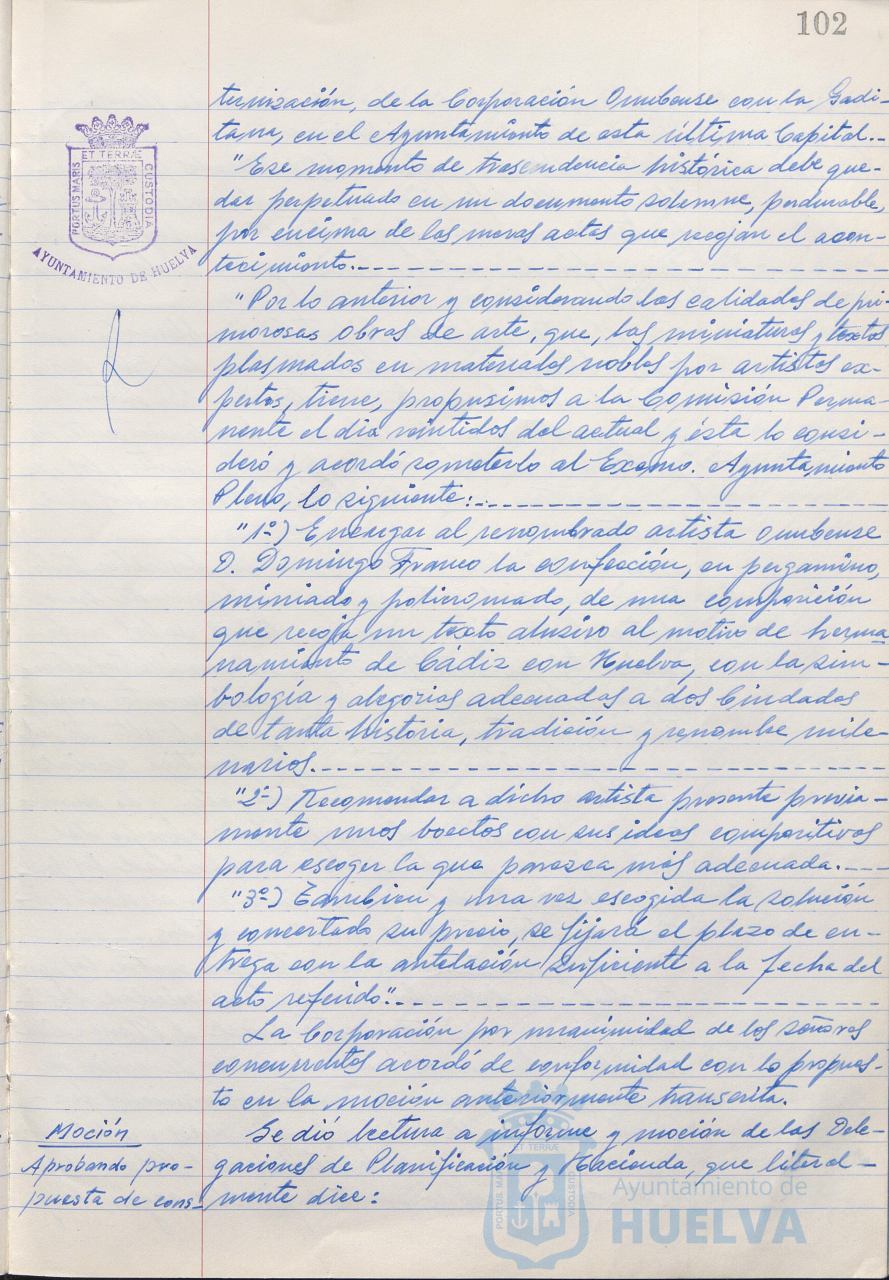 102
ternización, de la Corporación Onubense con la Gadi-
tana, en el Ayuntamiento de esta última Capital.-
"Ese momento de trascendencia histórica debe que-
dar perpetuado en un documento solemne, perdurable,
por encima de las meras actas que recojan el acon-
tecimiento.-
"Por lo anterior y considerando las calidades de pri-
morosas obras de arte, que, las miniaturas y textos
plasmados en materiales nobles por artistas ex-
pertos, tiene, propusimos a la Comisión Perma-
nente el día veintidos del actual y ésta lo consi-
deró y acordó someterlo al Excmo. Ayuntamiento
Pleno, lo siguiente:.-
"1º-) Encargar al renombrado artista onubense
D. Domingo Franco la confección, en pergamino,
miniado y policromado, de una composición
que recoja un texto alusivo al motivo de herma-
namiento de Cádiz con Huelva, con la sim-
bología y alegorias adecuadas a dos Ciudades
de tanta historia, tradición y renombre mile-
narios.-
"2º-) Recomendar a dicho artista presente previa-
mente unos bocetos con sus ideas compositivas
para escoger la que parezca más adecuada.-
"3º-) Tambien y una vez escogida la solución
y concertado su precio, se fijará el plazo de en-
trega con la antelación suficiente a la fecha del
acto referido".-
La Corporación por unanimidad de los señores
concurrentes acordó de conformidad con lo propues-
to en la moción anteriormente transcrita.
Moción
Aprobando pro-
puesta de cons-
Se dió lectura a informe y moción de las Dele-
gaciones de Planificación y Hacienda, que literal-
mente dice:
PORTUS MARIS ET TERRÆ CUSTODIA
AYUNTAMIENTO DE HUELVA
PORTUS MARIS ET TERRÆ CUSTODIA
Ayuntamiento de
HUELVA